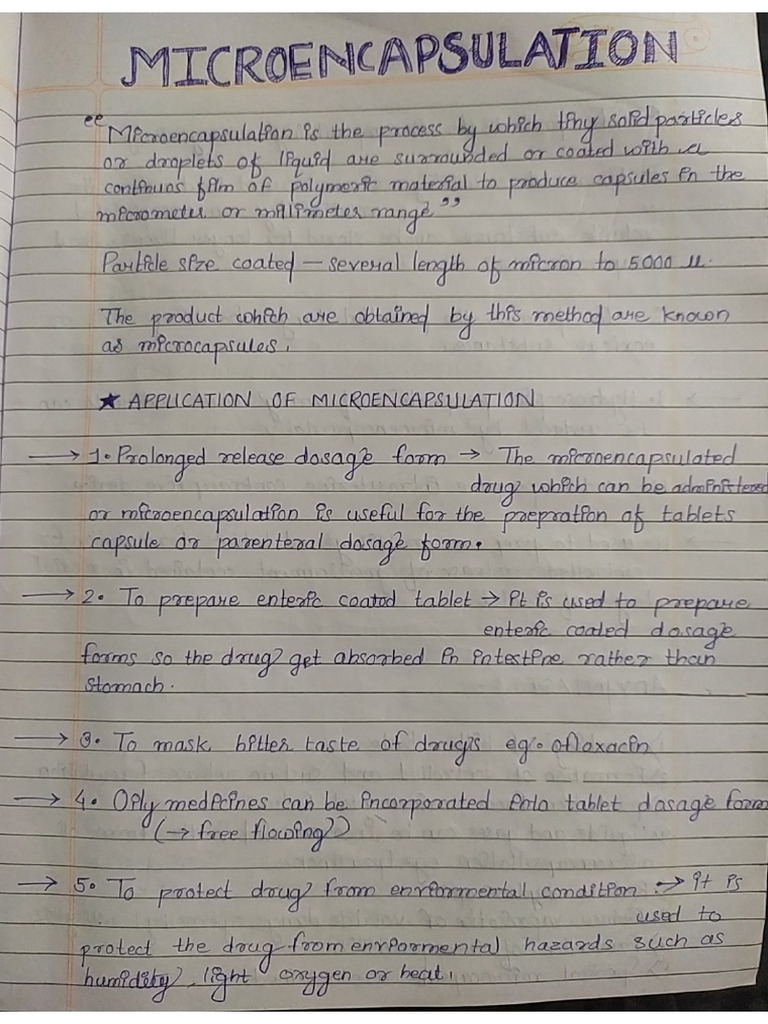 MICROENCAPSULATION
“Microencapsulation is the process by which tiny solid particles
or droplets of liquid are surrounded or coated with a
continuos film of polymeric material to produce capsules in the
micrometer or millimeter range”
Particle size coated – several length of micron to 5000 μ.
The product which are obtained by this method are known
as microcapsules.
★ APPLICATION OF MICROENCAPSULATION
→ 1. Prolonged release dosage form → The microencapsulated
drug which can be administered
or microencapsulation is useful for the prepration of tablets
capsule or parenteral dosage form.
→ 2. To prepare enteric coated tablet → it is used to prepare
enteric coated dosage
forms so the drug get absorbed in intestine rather than
stomach.
→ 3. To mask bitter taste of drugs eg. ofloxacin
→ 4. Oily medicines can be incorporated into tablet dosage form
(→ free flowing)
→ 5. To protect drug from envirormental condition :→ it is
used to
protect the drug from envirormental hazards such as
humidity, light oxygen or heat.